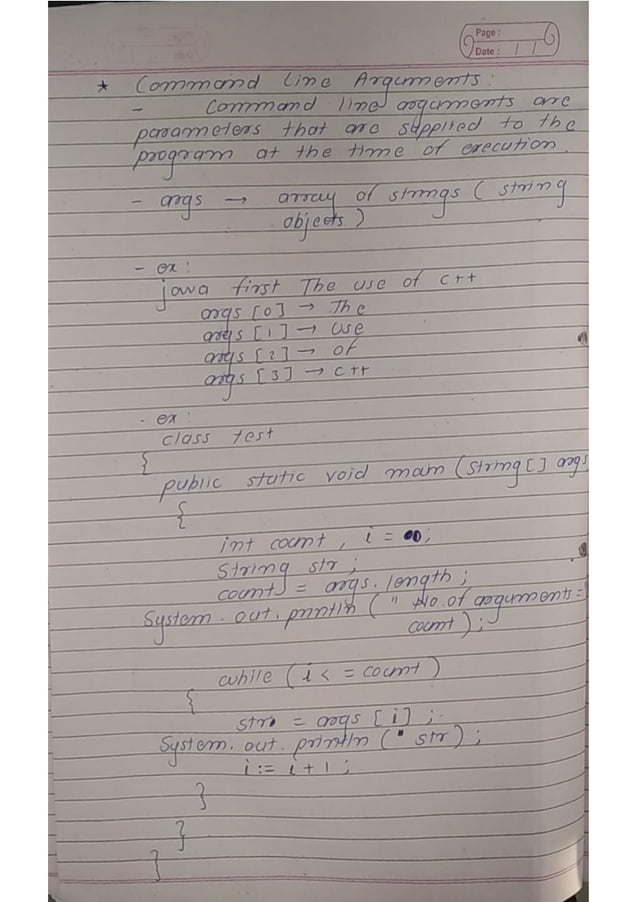 Page :
Date : / /
* Command Line Arguments :
- Command line arguments are
parameters that are supplied to the
program at the time of execution.
- args → array of strings ( string
objects )
- ex :
java first The use of C++
args [0] → The
args [1] → use
args [2] → of
args [3] → C++
- ex :
class test
{
public static void main (String[] args
{
int count , i = 0;
String str ;
count = args. length ;
System. out. println ( " No. of arguments =
count ) ;
while ( i < = count )
{
str = args [i] ;
System. out. println ( " str ) ;
i := i + 1 ;
}
}
}